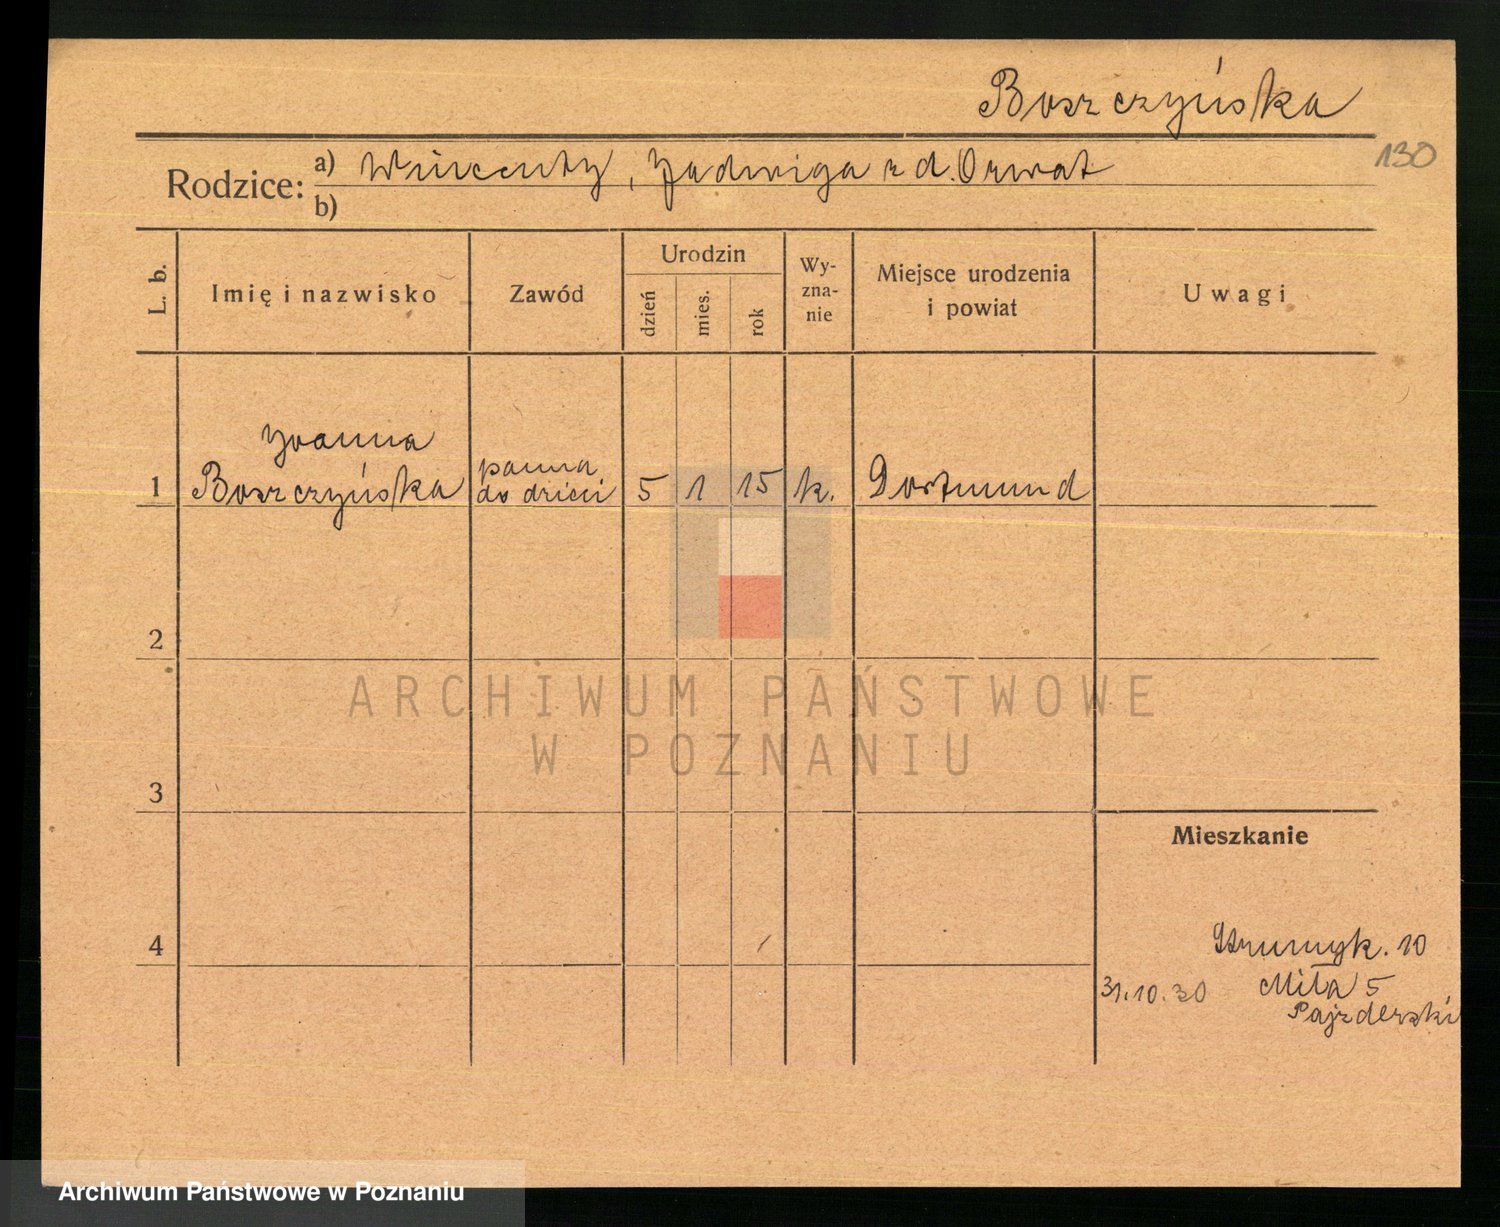 Boszczyńska
130
Rodzice: a) Wincenty, Jadwiga z d. Orwat
b)
L. b.
Imię i nazwisko
Zawód
Urodzin
dzień
mies.
rok
Wy-
zna-
nie
Miejsce urodzenia
i powiat
Uwagi
Joanna
1 Boszczyńska
panna
do dzieci
5 1 15 k. Dortmund
2
3
4
ARCHIWUM PAŃSTWOWE
W POZNANIU
Mieszkanie
Strumyk. 10
31.10.30 Miła 5
Pajzderski
Archiwum Państwowe w Poznaniu